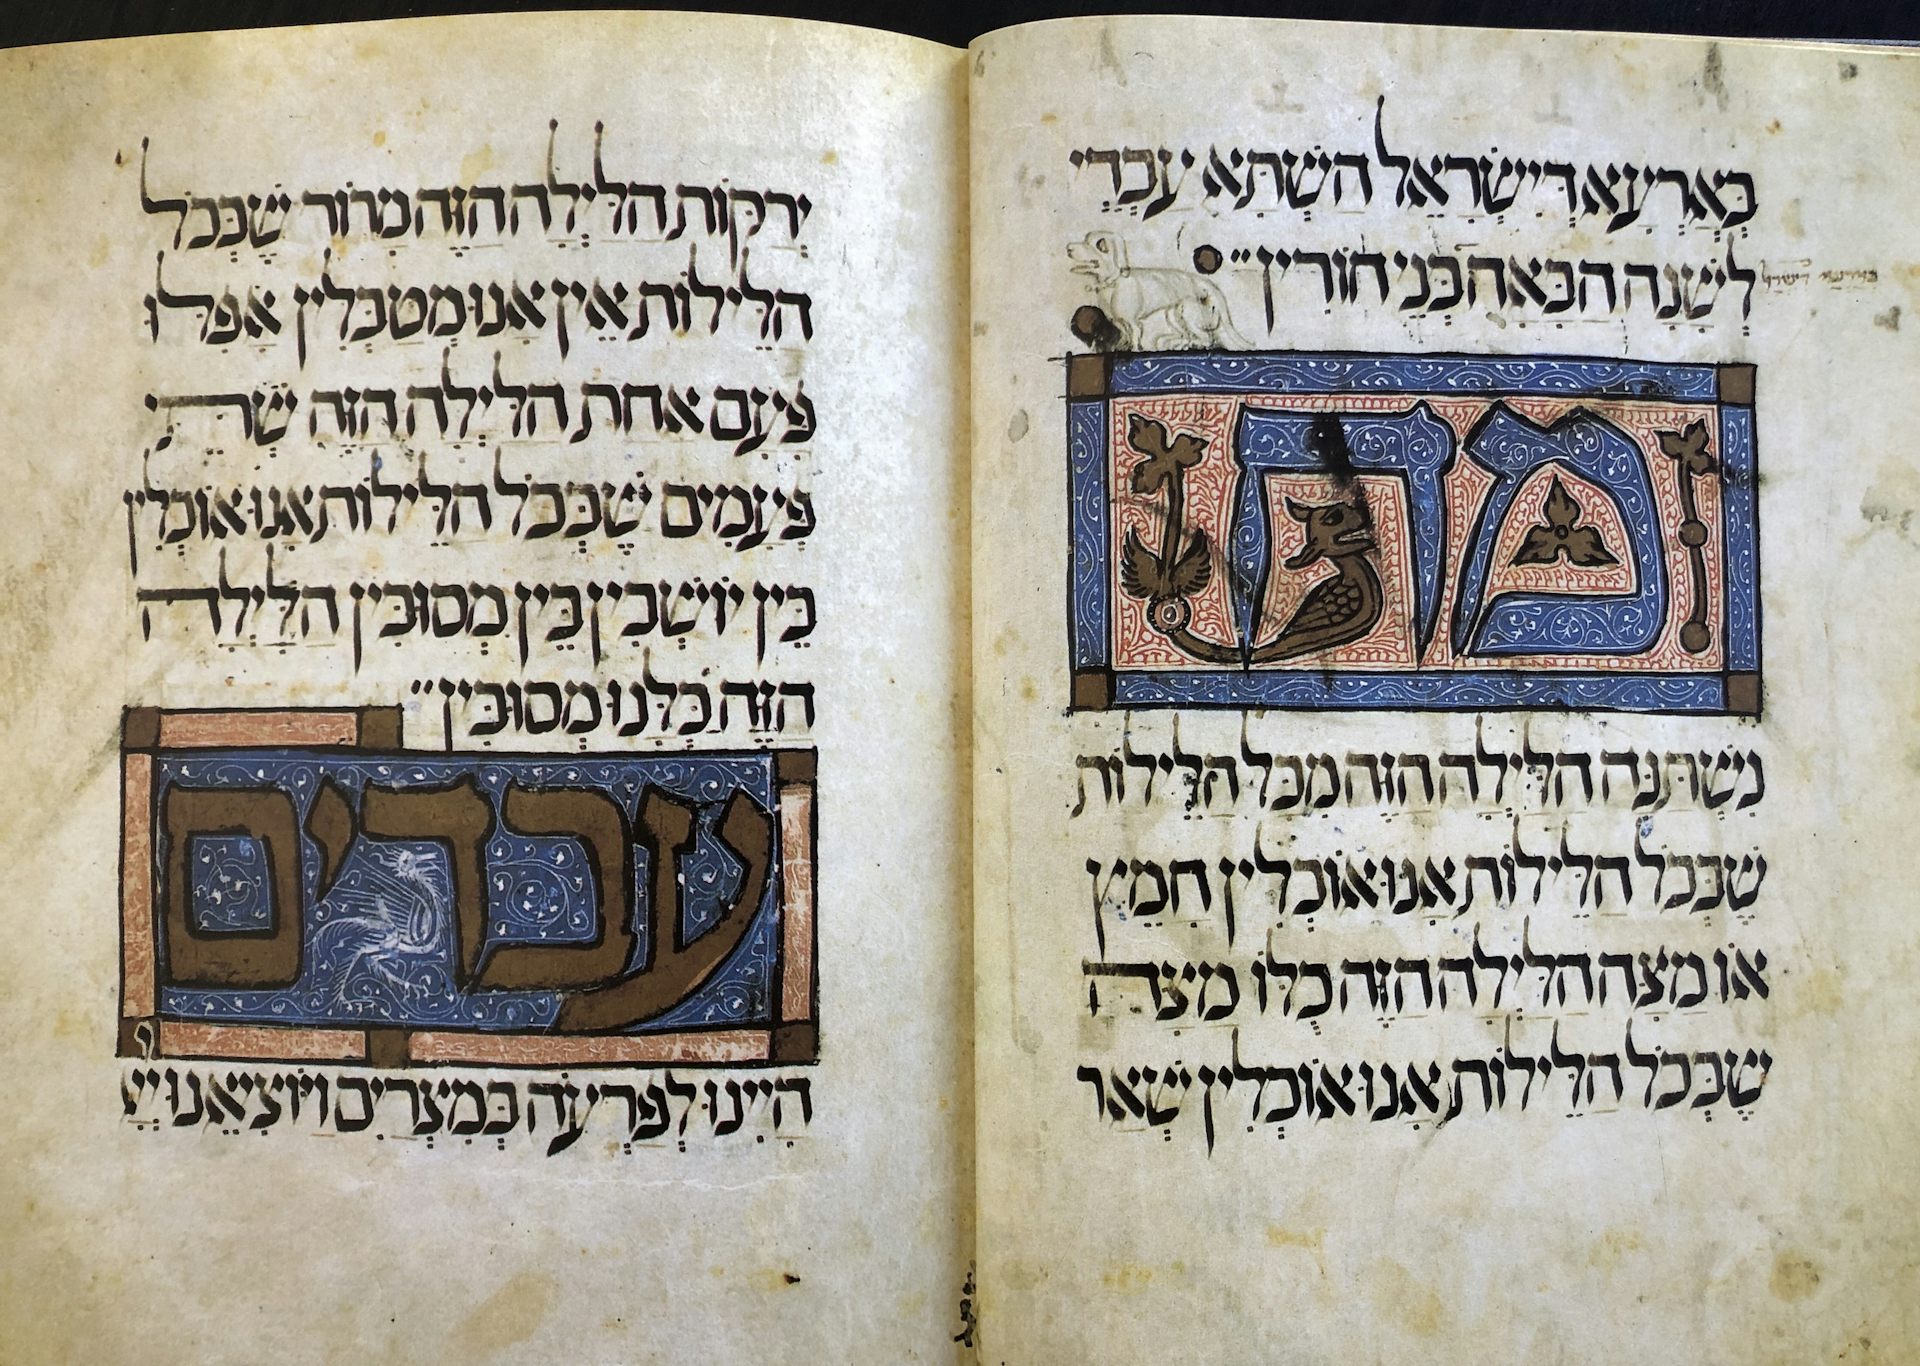 בְּאַרְעָא דְיִשְׂרָאֵל הַשְׁתָּא עַבְדֵי
לְשָׁנָה הַבָּאָה בְּנֵי חוֹרִין״
מה
נִשְׁתַּנָּה הַלַּיְלָה הַזֶּה מִכָּל הַלֵּילוֹת
שֶׁבְּכָל הַלֵּילוֹת אָנוּ אוֹכְלִין חָמֵץ
אוֹ מַצָּה הַלַּיְלָה הַזֶּה כֻּלּוֹ מַצָּה
שֶׁבְּכָל הַלֵּילוֹת אָנוּ אוֹכְלִין שְׁאָר
יְרָקוֹת הַלַּיְלָה הַזֶּה מָרוֹר שֶׁבְּכָל
הַלֵּילוֹת אֵין אָנוּ מְטַבְּלִין אֲפִלּוּ
פַּעַם אַחַת הַלַּיְלָה הַזֶּה שְׁתֵּי
פְּעָמִים שֶׁבְּכָל הַלֵּילוֹת אָנוּ אוֹכְלִין
בֵּין יוֹשְׁבִין בֵּין מְסוּבִּין הַלַּיְלָה
הַזֶּה כֻּלָּנוּ מְסוּבִּין״
עבדים
הָיִינוּ לְפַרְעֹה בְּמִצְרַיִם וַיּוֹצִיאֵנוּ יְיָ